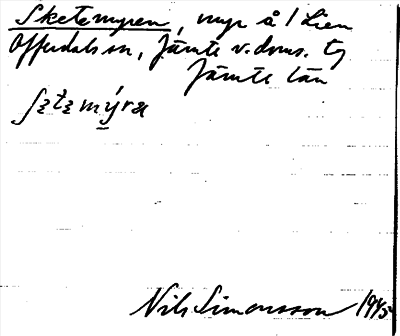 Sketemyren, myr å/ Lien
Offerdals sn, Jämtl. v. doms. tg
Jämtl. län
ʃɛtɛmýræ
Nils Simonsson 1945